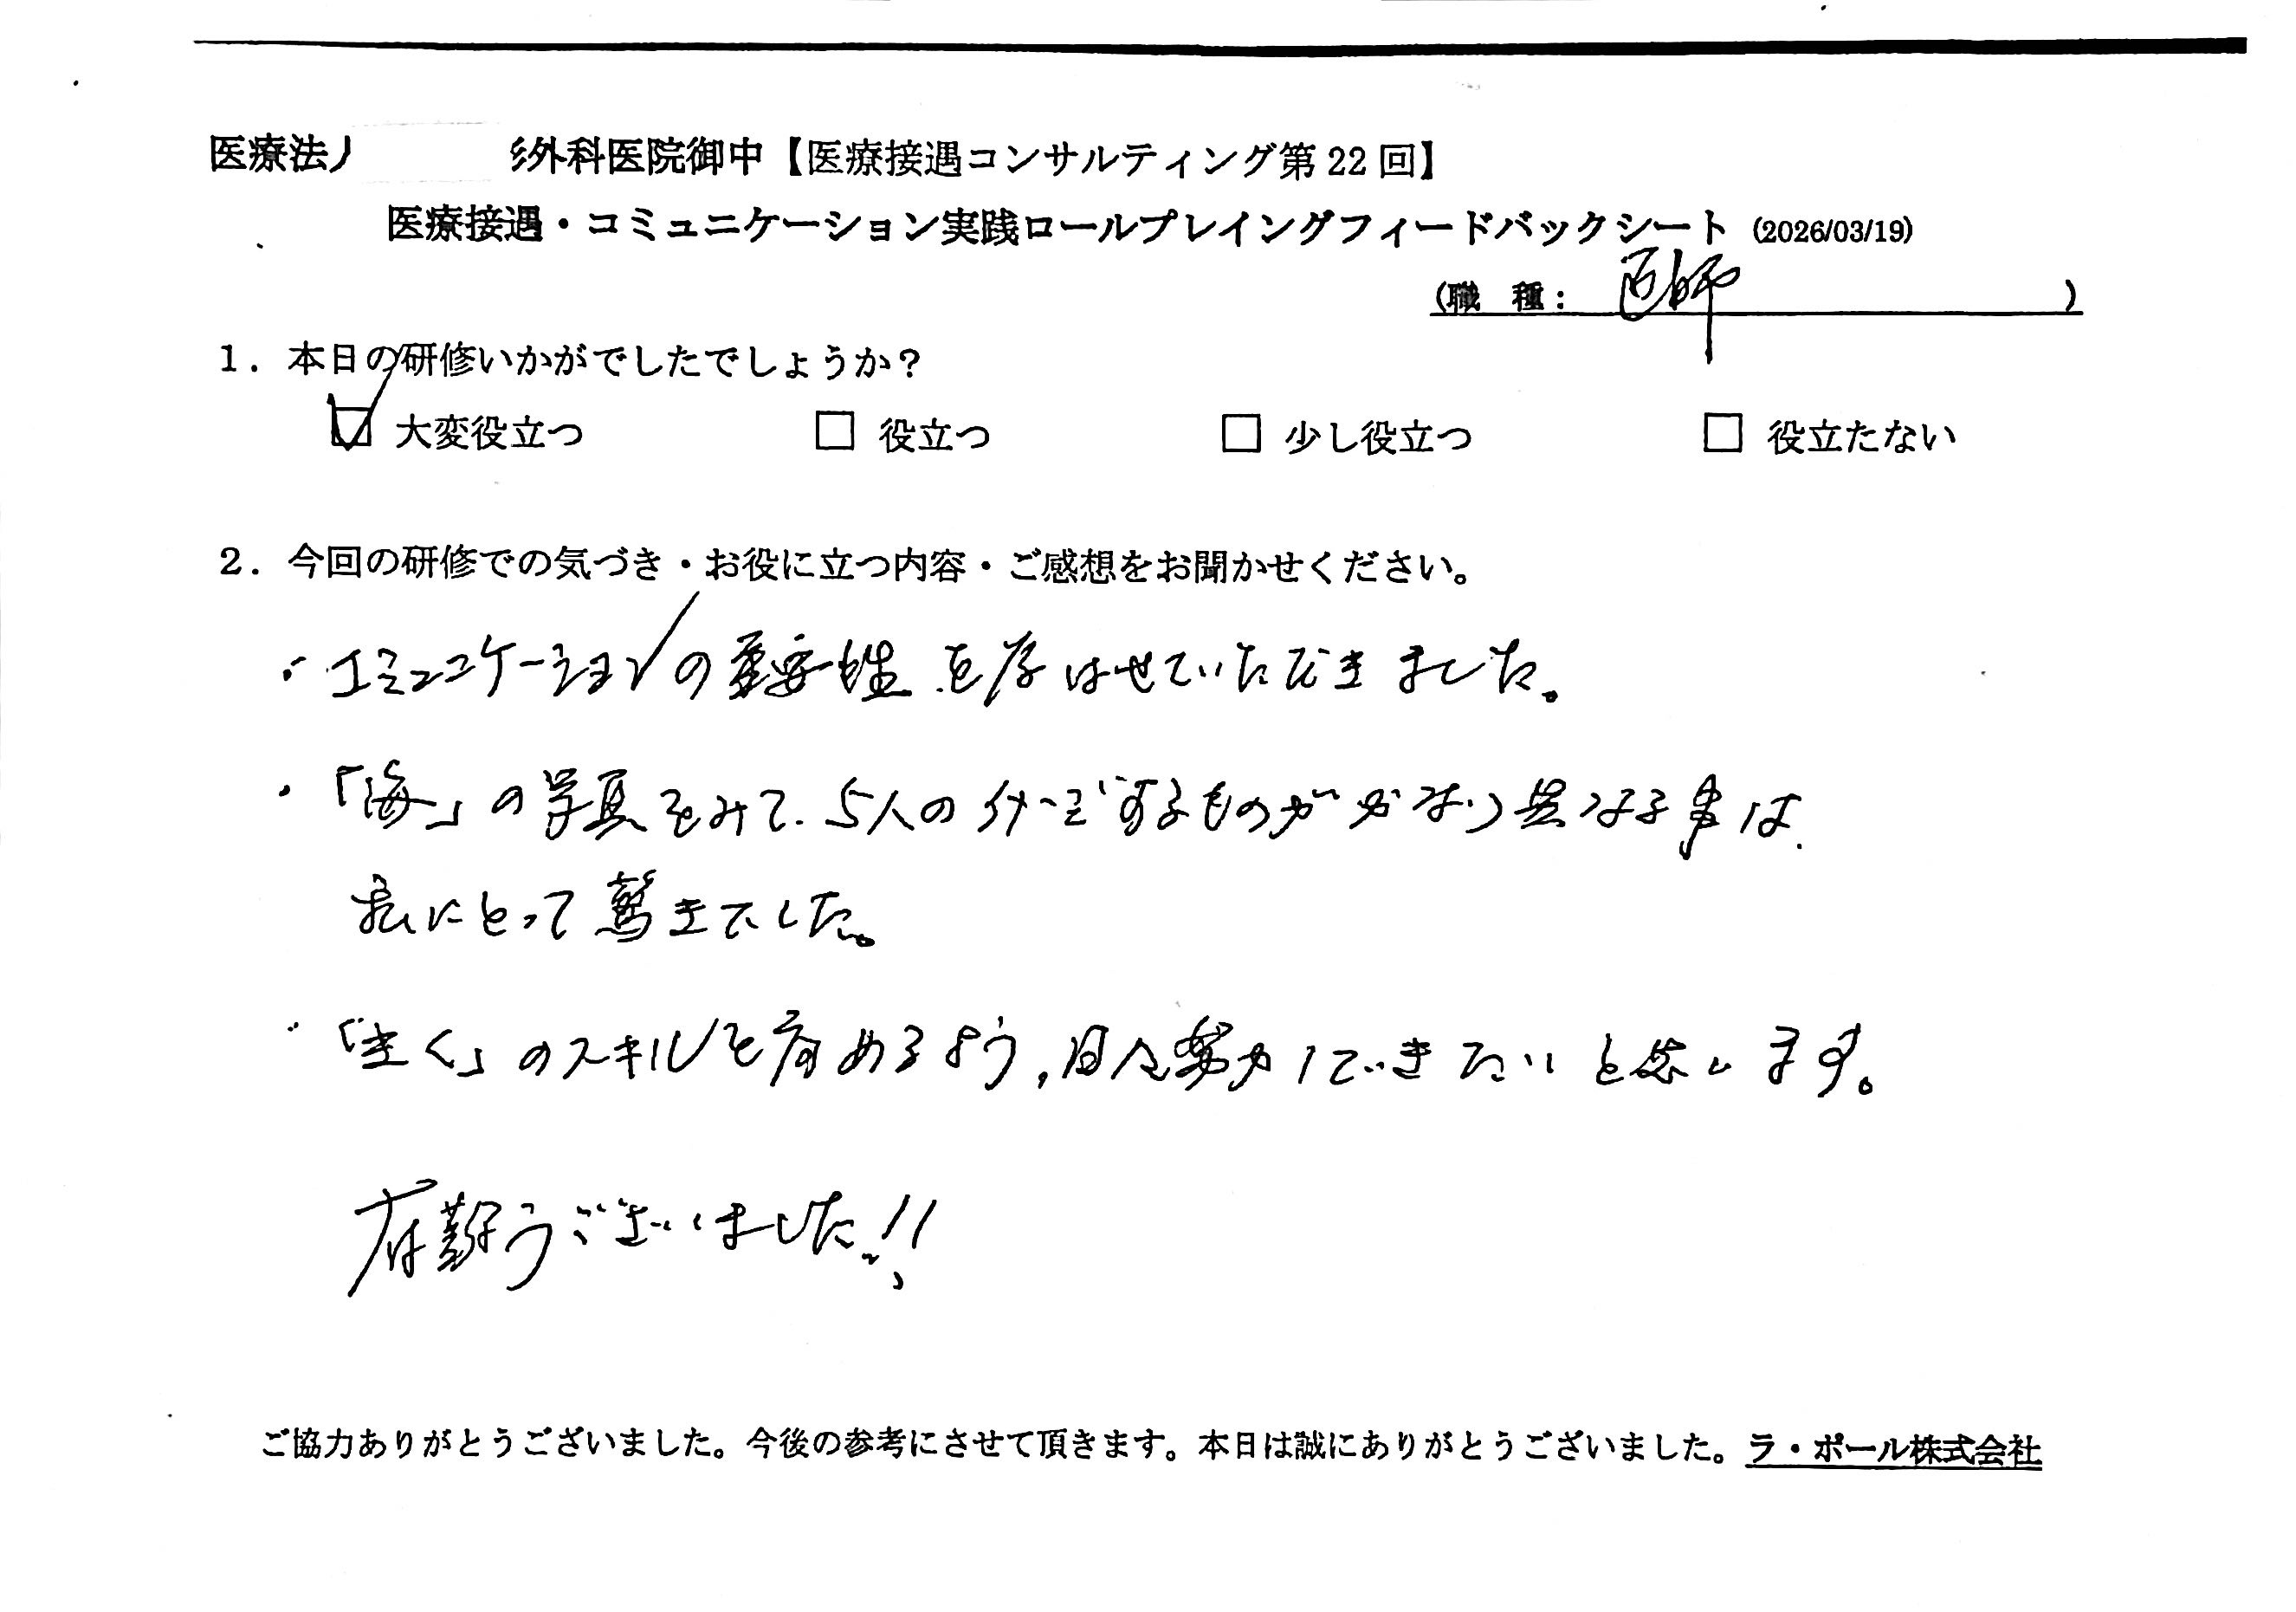 医療法人 形外科医院御中【医療接遇コンサルティング第22回】
医療接遇・コミュニケーション実践ロールプレイングフィードバックシート (2026/03/19)
(職 種： 医師 )
1．本日の研修いかがでしたでしょうか？
☑ 大変役立つ □ 役立つ □ 少し役立つ □ 役立たない
2．今回の研修での気づき・お役に立つ内容・ご感想をお聞かせください。
・コミュニケーションの重要性を学ばせていただきました。
・「海」の写真をみて、5人のイメージするものがかなり異なる事は、
私にとって驚きでした。
・「きく」のスキルを高めるよう、日々努力していきたいと思います。
有難うございました!!
ご協力ありがとうございました。今後の参考にさせて頂きます。本日は誠にありがとうございました。ラ・ポール株式会社